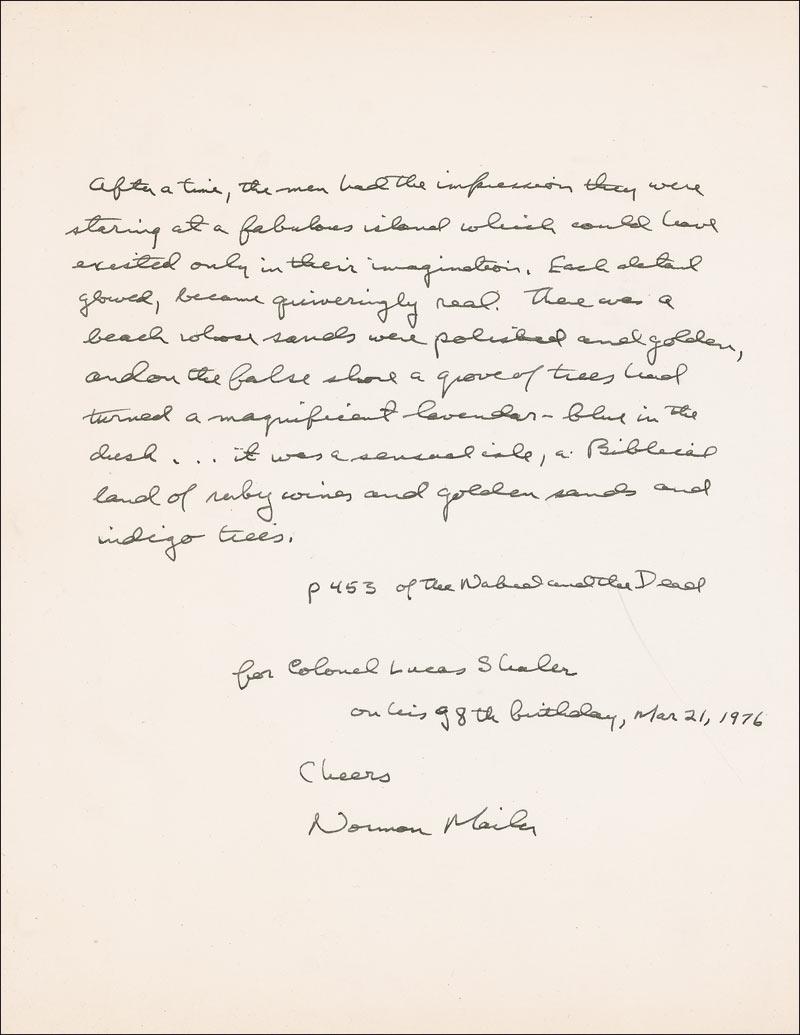 After a time, the men had the impression they were
staring at a fabulous island which could have
existed only in their imagination. Each detail
glowed, became quiveringly real. There was a
beach whose sands were polished and golden,
and on the false shore a grove of trees had
turned a magnificent lavender-blue in the
dusk . . . it was a sensual isle, a Biblical
land of ruby wines and golden sands and
indigo trees.
p 453 of the Naked and the Dead
for Colonel Lucas Shaler
on his 98th birthday, Mar 21, 1976
Cheers
Norman Mailer